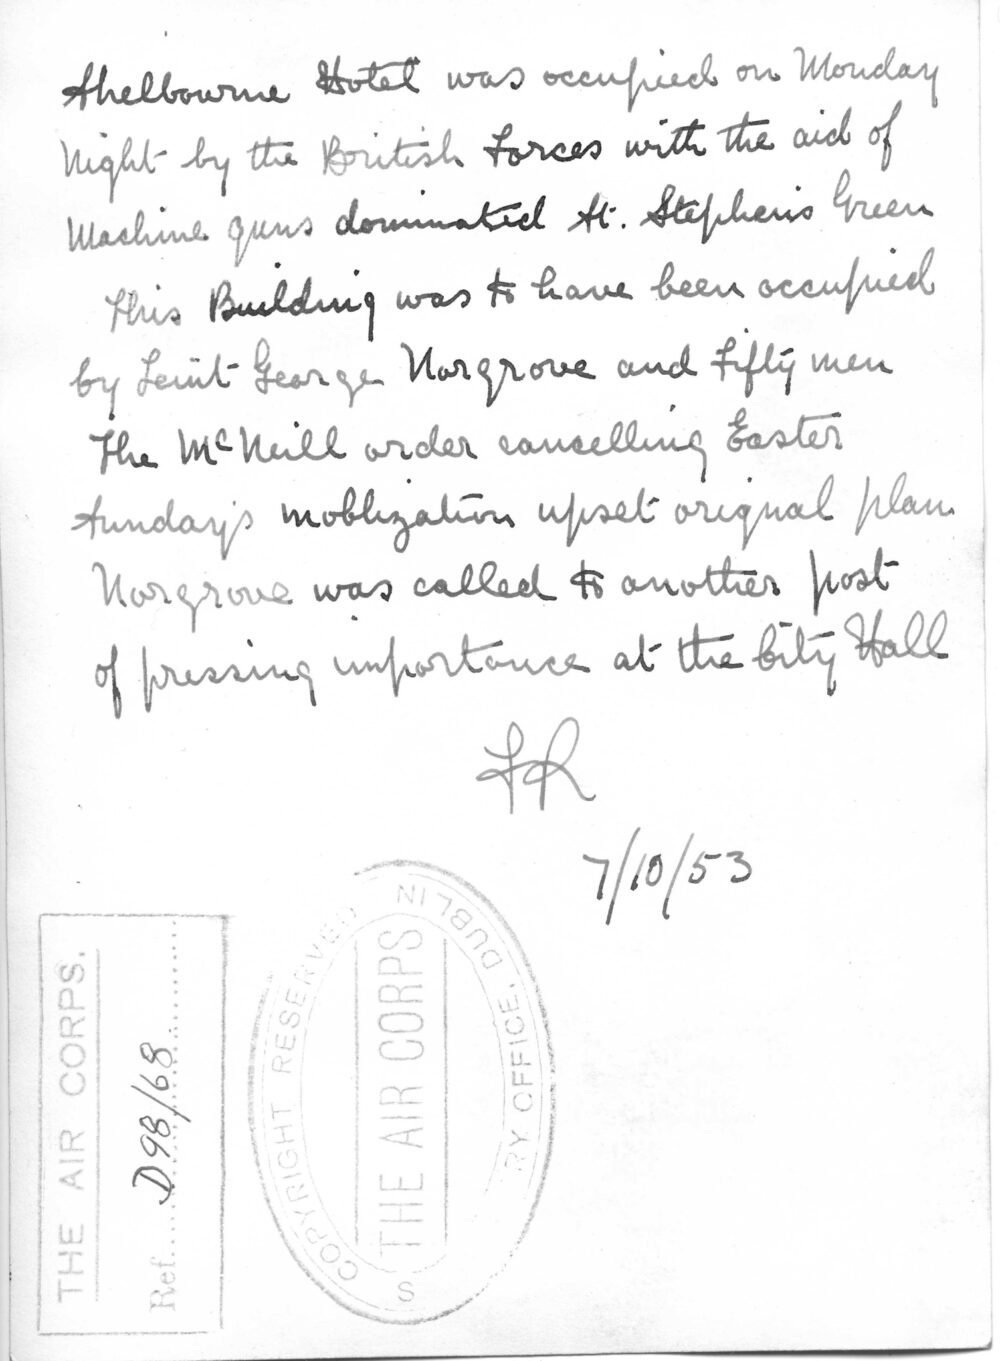 Shelbourne Hotel was occupied on Monday
Night by the British Forces with the aid of
Machine guns dominated St. Stephens Green
This Building was to have been occupied
by Leiut George Norgrove and Fifty men
The McNeill order cancelling Easter
Sunday's moblization upset orignal plan.
Norgrove was called to another post
of pressing importance at the City Hall
FR
7/10/53
THE AIR CORPS.
Ref. D98/68
COPYRIGHT RESERVED
THE AIR CORPS
RY OFFICE, DUBLIN
S